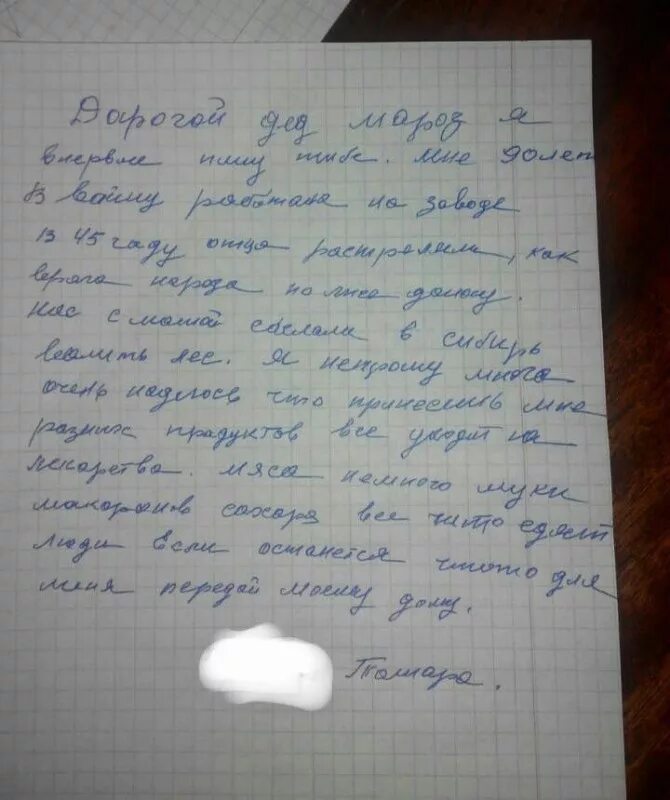 Дарогой дед мароз я
впервые пишу тибе. Мне 90 лет
В войну работала на заводе
В 45 гаду отца растреляли, как
врага народа по лже доносу.
Нас с мамой сослали в сибирь
валить лес. Я непрошу многа
очень надеюсь что принесешь мне
разных продуктов все уходит на
лекарства. мяса немного муки
макаронов сахара все что едят
люди если останется чтото для
меня передай моему дому.
Тамара.